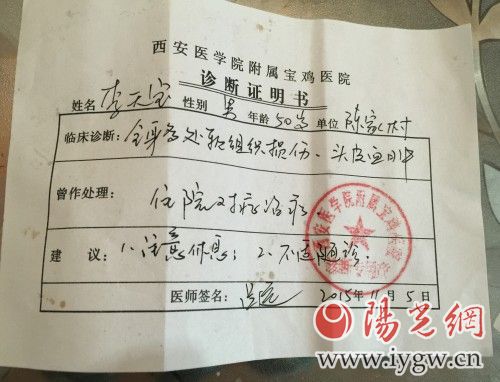 西安医学院附属宝鸡医院
诊断证明书
姓名 李天宝 性别 男 年龄 50岁 单位 陈家村
临床诊断：全身多处软组织损伤、头皮血肿
曾作处理：住院对症治疗
建 议：1.注意休息；2.不适随诊.
医师签名： 2015年11月5日
西安医学院附属宝鸡医院
陽光網
www.iygw.cn